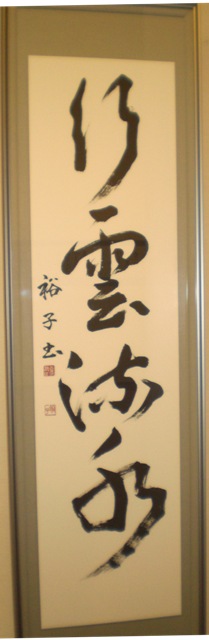 行雲流水
裕子書